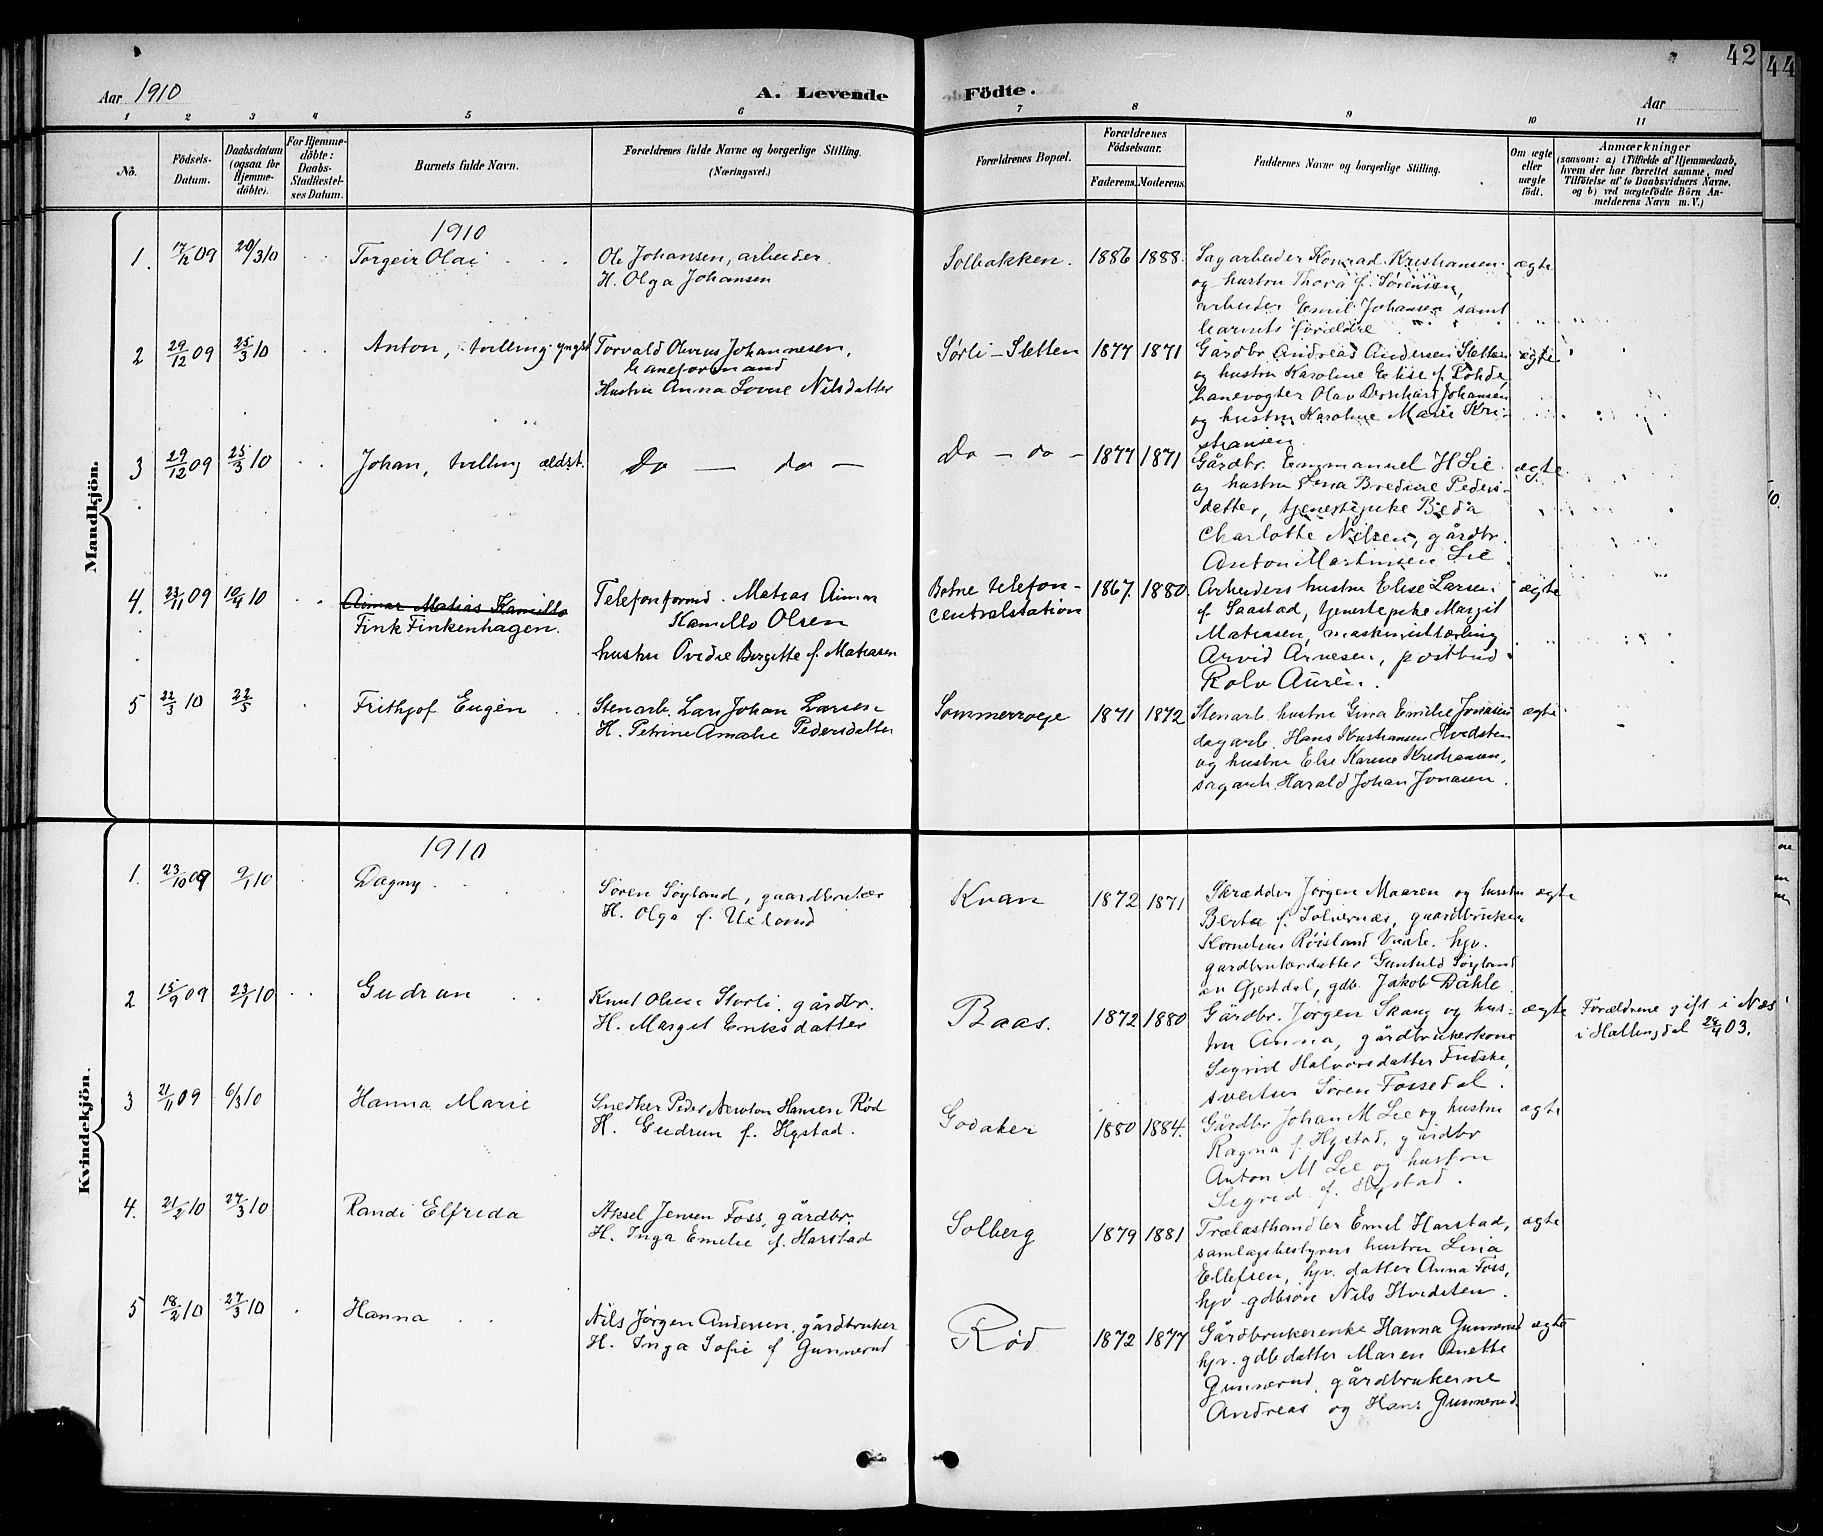 42
44
Aar 1910
A. Levende
Födte.
Aar
1 2 3 4 5 6 7 8 9 10 11
No.
Födsels-
Datum.
Daabsdatum
(ogsaa for
Hjemme-
döbte).
For Hjemme-
döbte:
Daabs-
Stadfæstel-
ses Datum.
Barnets fulde Navn.
Forældrenes fulde Navne og borgerlige Stilling.
(Næringsvei.)
Forældrenes Bopæl.
Forældrenes
Födselsaar.
Faderens.
Moderens.
Faddernes Navne og borgerlige Stilling.
Om ægte
eller
uægte
födt.
Anmærkninger
(saasom: a) i Tilfælde af Hjemmedaab,
hvem der har forrettet samme, med
Tilföielse af to Daabsvidners Navne,
og b) ved uægtefödte Börn An-
melderens Navn m. V.)
Mandkjön.
1910
1. 17/12 09 20/3 10 Torgeir Olai
Ole Johansen, arbeider
H. Olga Johansen
Solbakken. 1886 1888.
Sagarbeider Konrad Kristiansen
og hustru Thora f. Sørensen,
arbeider Emil Johansen samt
barnets forældre
ægte
2 29/12 09 25/3 10 Anton, tvilling yngst
Torvald Olivius Johannesen,
baneformand
Hustru Anna Lovise Nilsdatter
Sørli-Sletten 1877 1871
Gårdbr. Andreas Andersen Sletten
og hustru Karoline Elise f. Rohde,
banevogter Olav Bernhard Johansen
og hustru Karoline Marie Kri-
stiansen
ægte
3 29/12 09 25/3 10 Johan, tvilling ældst.
Do — do —
Do — do — 1877 1871
Gårdbr. Emmanuel H Lie
og hustru Lena Bredine Peders-
datter, tjenestepike Beda
Charlotte Nilsen, gårdbr.
Anton Martinsen Lie
ægte
4. 23/11 09 10/4 10 Aimar Matias Kamillo
Fink Finkenhagen.
Telefonformd. Matias Aimar
Kamillo Olsen
hustru Ovidie Bergitte f. Matiasen
Botne telefon-
centralstation
1867. 1880.
Arbeiders hustru Elise Larsen
f. Saastad, tjenestepike Margit
Matiasen, maskinistlærling
Arvid Arnesen, postbud
Rolv Aurèn.
ægte
5 22/3 10 22/5 Frithjof Eugèn
Stenarb. Lars Johan Larsen
H. Petrine Amalie Pedersdatter
Sommerroege 1871 1872
Stenarb. hustru Gina Emilie Jonasen
dagarb. Hans Kristiansen Hvidsten
og hustru Else Karine Kristiansen,
sagarb. Harald Johan Jonasen.
ægte
Kvindekjön.
1910
1. 23/10 09 9/1 10 Dagny
Søren Søyland, gaardbruker
H. Olga f. Ueland
Kvan 1872 1871
Skrædder Jørgen Maaren og hustru
Berta f. Solvernæs, gaardbruker
Kornelius Røisland hjv.
gårdbrukerdatter Gunhild Søyland
av Gjestdal, gdb. Jakob Dahle
ægte
2 15/9 09 23/1 10 Gudrun
Knut Olsen Storli, gårdbr.
H. Margit Eriksdatter
Baas. 1872 1880
Gårdbr. Jørgen Skaug og hus-
tru Anna, gårdbrukerkone
Sigrid Halvorsdatter
sveitser Søren Fossedal.
ægte
Forældrene gift i Næs
i Hallingdal 29/4 03.
3 21/11 09 6/3 10 Hanna Marie
Snedker Peder Newton Hansen Rød
H. Gudrun f. Hystad.
Godaker 1880 1884.
Gårdbr Johan M Lie og hustru
Ragna f. Hystad, gårdbr
Anton M Lie og hustru
Sigrid f. Hystad.
ægte
4. 21/2 10 27/3 10 Randi Elfrida
Aksel Jensen Foss, gårdbr.
H. Inga Emelie f. Harstad
Solberg 1879 1881
Trælasthandler Emil Harstad,
samlagsbestyrers hustru Lina
Ellefsen, hjv. datter Anna Foss,
hjv. gdbsøn Nils Hvidsten.
ægte
5 18/2 10 27/3 10 Hanna
Nils Jørgen Andersen gårdbruker
H. Inga Sofie f Gunnerud
Rød 1872 1877
Gårdbrukerenke Hanna Gunnerud
hjv. gdbdatter Maren Anette
Gunnerud, gårdbrukerne
Andreas og Hans Gunnerud.
ægte